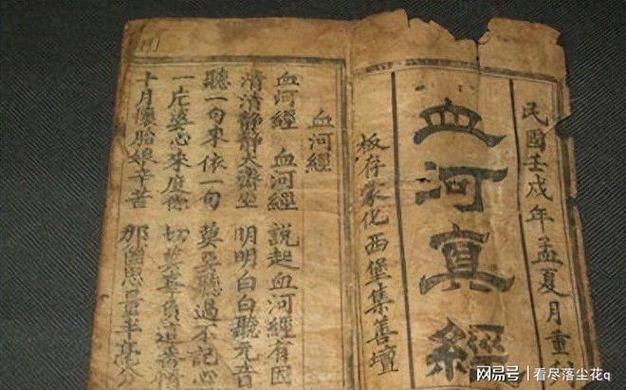 民國壬戌年孟夏月重
血河真經
板存蒙化西堡集善壇
血河經
血河經 血河經 說起血河經有因
清清靜靜大齋坐 明明白白聽元音
聽一句來依一句 莫要聽過不記心
一片婆心來度你 切莫辜負這善
十月懷胎娘辛苦 那個思量半毫
网易号 | 看尽落尘花q